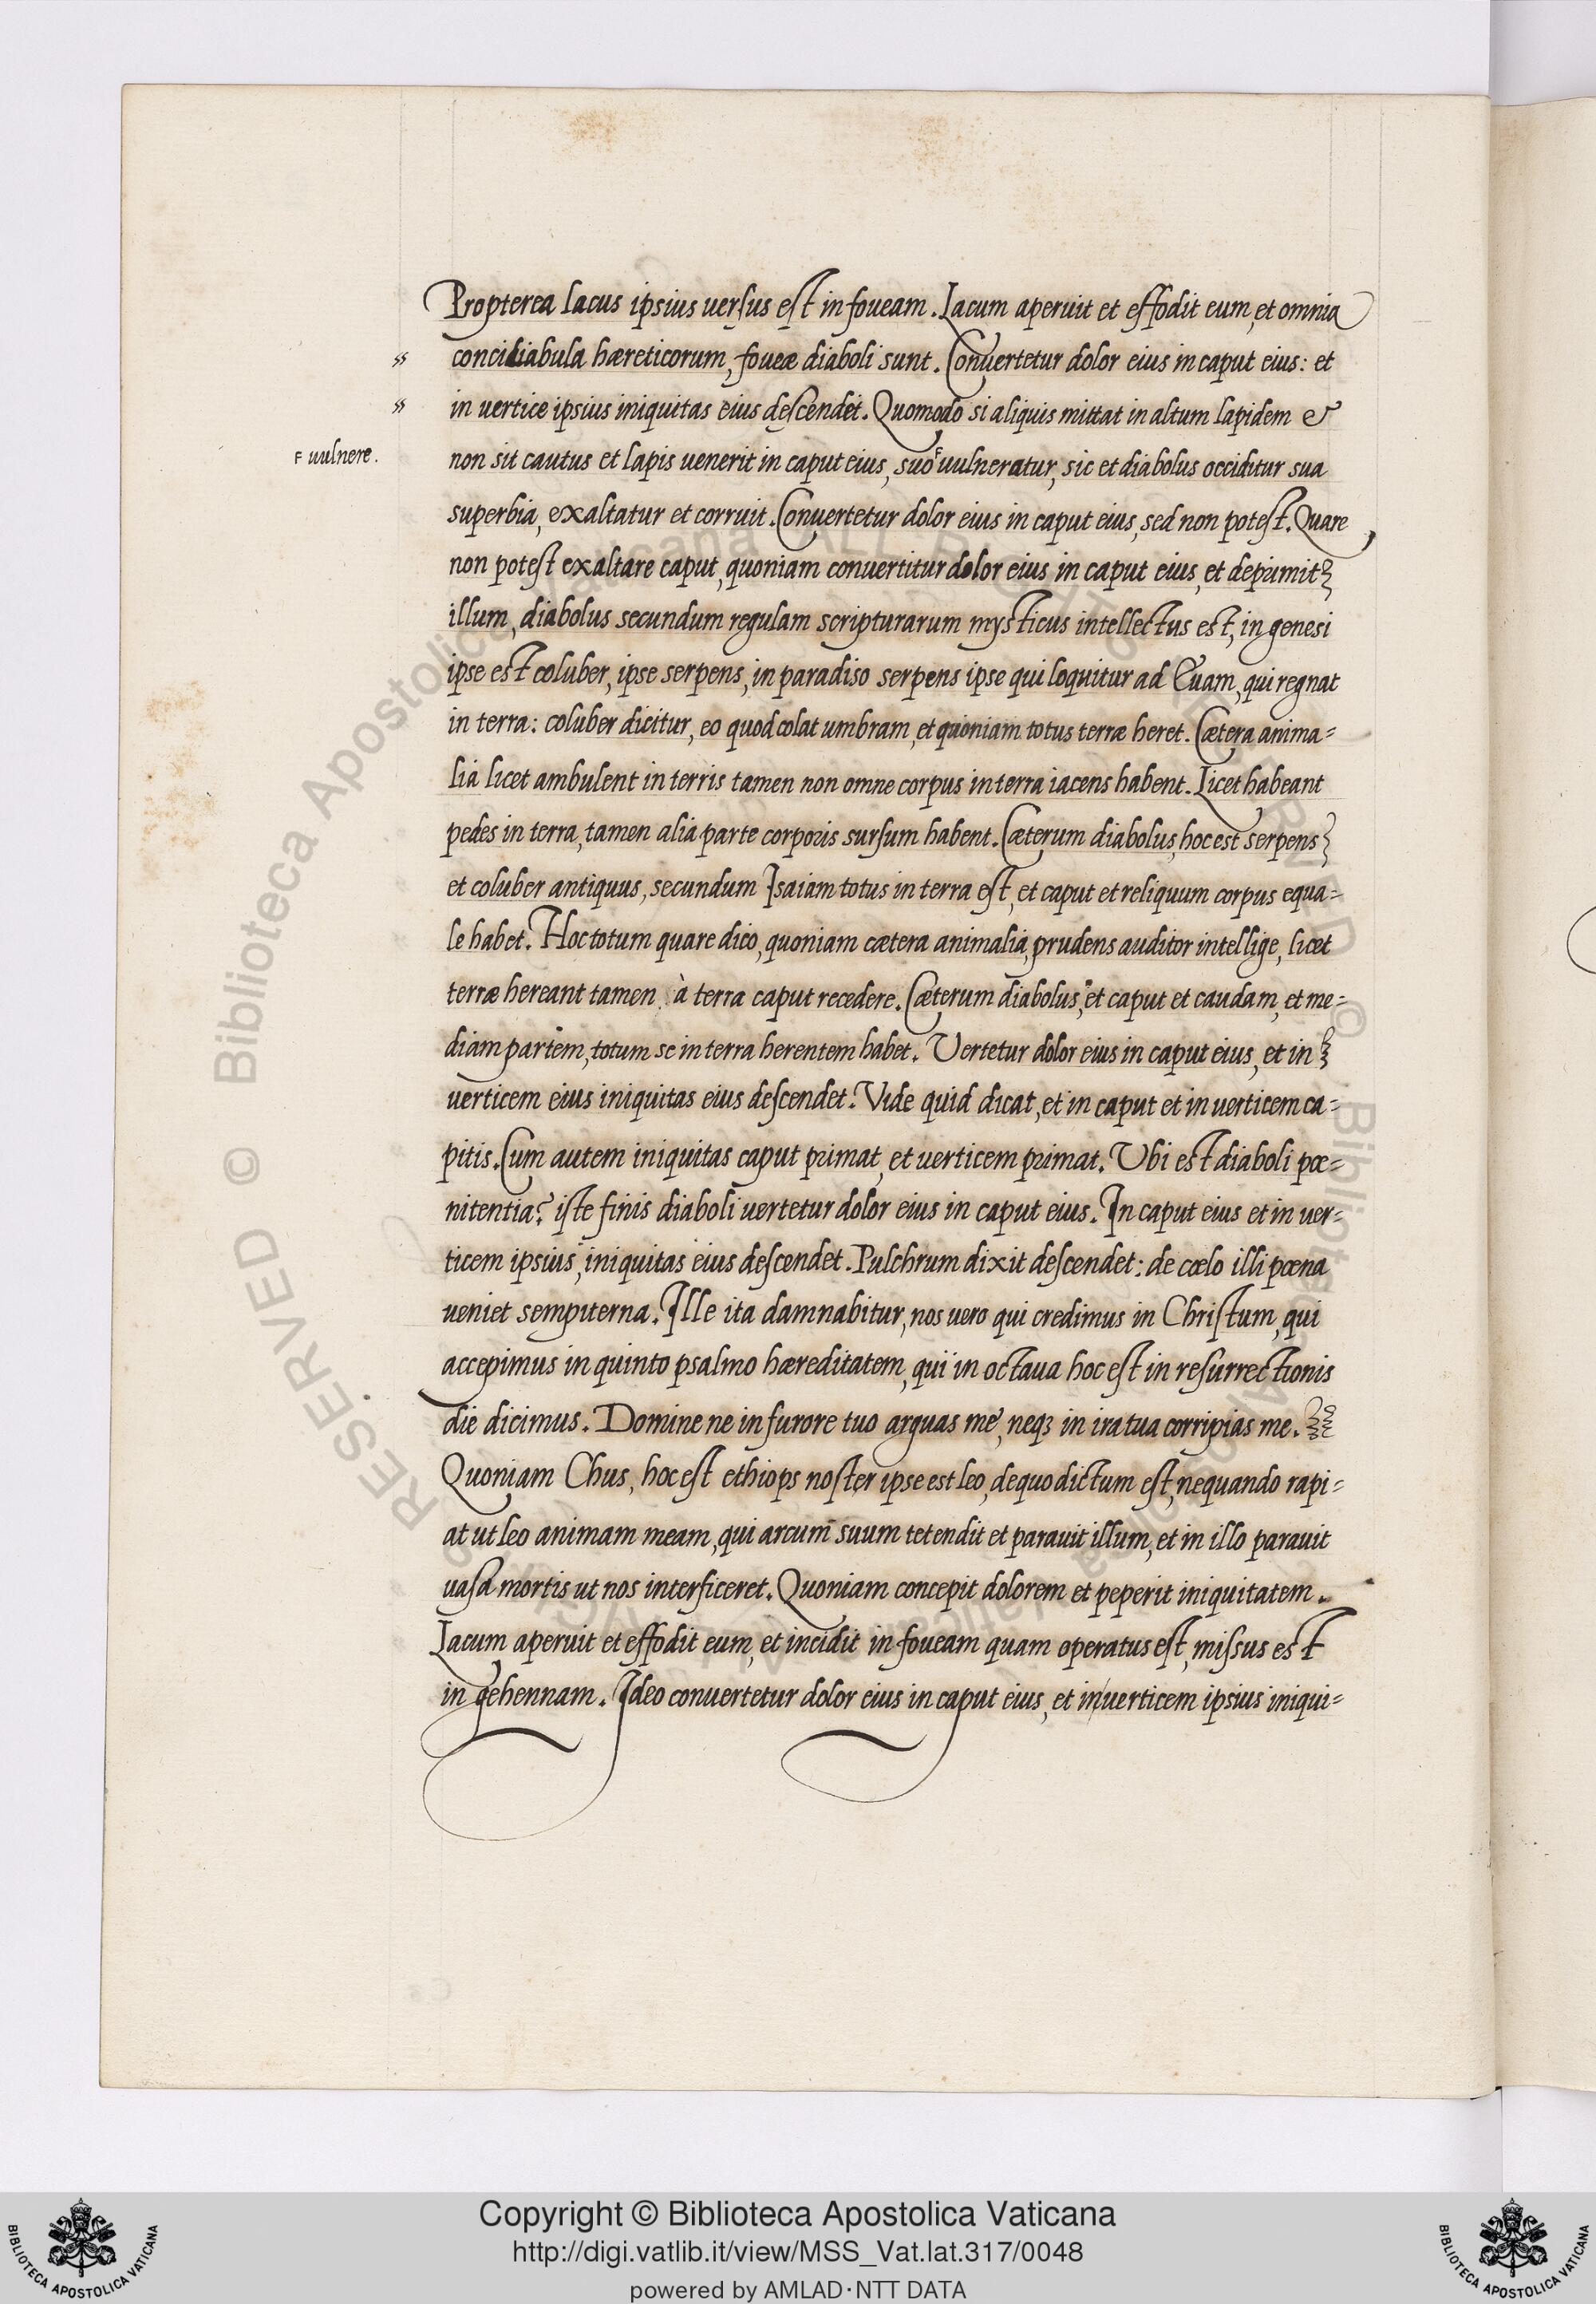 Propterea lacus ipsius versus est in foueam. Lacum aperuit et effodit eum, et omnia
conciliabula hæreticorum, foueæ diaboli sunt. Conuertetur dolor eius in caput eius: et
in vertice ipsius iniquitas eius descendet. Quomodo si aliquis mittat in altum lapidem &
F uulnere.
non sit cautus et lapis uenerit in caput eius, suo F uulneratur, sic et diabolus occiditur sua
superbia, exaltatur et corruit. Conuertetur dolor eius in caput eius, sed non potest. Quare
non potest exaltare caput, quoniam conuertitur dolor eius in caput eius, et deprimit
illum, diabolus secundum regulam scripturarum mysticus intellectus est, in genesi
ipse est coluber, ipse serpens, in paradiso serpens ipse qui loquitur ad Euam, qui regnat
in terra: coluber dicitur, eo quod colat umbram, et quoniam totus terræ heret. Cætera anima=
lia licet ambulent in terris tamen non omne corpus in terra iacens habent. Licet habeant
pedes in terra, tamen alia parte corporis sursum habent. Cæterum diabolus, hoc est serpens
et coluber antiquus, secundum Isaiam totus in terra est, et caput et reliquum corpus equa=
le habet. Hoc totum quare dico, quoniam cætera animalia, prudens auditor intellige, licet
terræ hereant tamen à terra caput recedere. Cæterum diabolus, et caput et caudam, et me=
diam partem, totum se in terra herentem habet. Vertetur dolor eius in caput eius, et in
uerticem eius iniquitas eius descendet. Vide quid dicat, et in caput et in uerticem ca=
pitis. Cum autem iniquitas caput primat, et uerticem primat. Ubi est diaboli pœ=
nitentia? iste finis diaboli uertetur dolor eius in caput eius. In caput eius et in uer=
ticem ipsius, iniquitas eius descendet. Pulchrum dixit descendet: de cœlo illi pœna
ueniet sempiterna. Ille ita damnabitur, nos uero qui credimus in Christum, qui
accepimus in quinto psalmo hæreditatem, qui in octaua hoc est in resurrectionis
die dicimus. Domine ne in furore tuo arguas me, neqꝫ in ira tua corripias me.
Quoniam Chus, hoc est ethiops noster ipse est leo, de quo dictum est, nequando rapi=
at ut leo animam meam, qui arcum suum tetendit et parauit illum, et in illo parauit
uasa mortis ut nos interficeret. Quoniam concepit dolorem et peperit iniquitatem.
Lacum aperuit et effodit eum, et incidit in foueam quam operatus est, missus est
in gehennam. Ideo conuertetur dolor eius in caput eius, et in/uerticem ipsius iniqui=
© Biblioteca Apostolica Vaticana ALL RIGHTS RESERVED
Copyright © Biblioteca Apostolica Vaticana
http://digi.vatlib.it/view/MSS_Vat.lat.317/0048
powered by AMLAD·NTT DATA
BIBLIOTECA APOSTOLICA VATICANA
BIBLIOTECA APOSTOLICA VATICANA